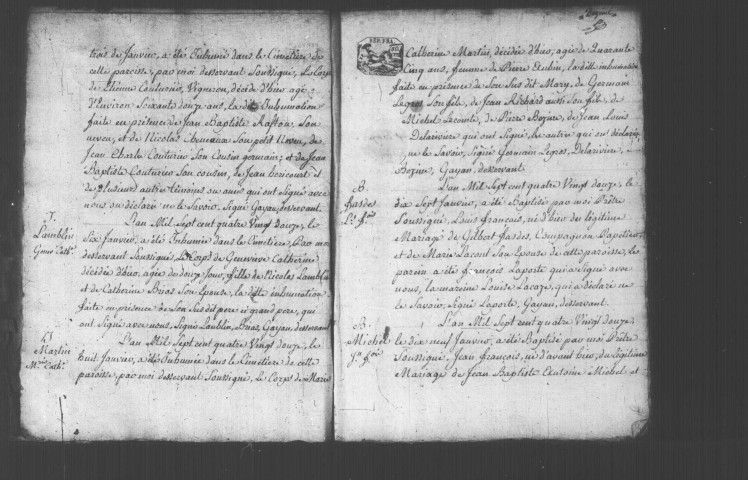 trois de Janvier, a été Inhumé dans le Cimetière de
cette paroisse, par moi desservant Soussigné, Le Corps
de Etienne Couturier, Vigneron, décédé d'hier agé
d'Environ Soixante douze ans, la dite Inhumation
faite en présence de Jean Baptiste Raffou, Son
neveu, et de Nicolas Son petit Neveu, de
Jean Charles Couturier Son Cousin germain; et de Jean
Baptiste Couturier Son cousin, de Jean et
de plusieurs autre témoins ou amis qui ont Signé avec
nous ou déclaré ne le Savoir. Signé Gayan, desservant.
L'an Mil Sept cent quatre Vingt douze, le
Lamblin
Genev. Cath.
Six Janvier, a été Inhumée dans le Cimetière, Par moi
desservant Soussigné, Le Corps de Geneviève Catherine
décédée d'hier, agée de douze Jours, fille de Nicolas Lamblin
et de Catherine Brias Son Epouse, la ditte inhumation
faite en présence de Son Susdit père et grand père, qui
ont Signé avec nous, Signé Lamblin, Brias, Gayan, desservant
L'an Mil Sept cent quatre Vingt douze, le
Martin
M. Cath.
huit Janvier, a été Inhumée dans le Cimetière de cette
paroisse, par moi desservant Soussigné, Le Corps de Marie
Catherine Martin, décédée d'hier, agée de Quarante
Cinq ans, femme de Pierre Aubin, la ditte inhumation
faite en présence de Son Sus dit Mary, de Germain
Legros Son fils, de Jean Richard aussi Son fils, de
Michel Lecomte, de Pierre Bozure, de Jean Louis
Delariviere qui ont Signé, les autres qui ont déclaré
ne le Savoir, Signé Germain Legros, Delariviere,
Bozure, Gayan, desservant
B.
Jardes
L. fois
L'an Mil Sept cent quatre Vingt douze, le
dix Sept Janvier, a été Baptisé par moi Prêtre
Soussigné, Louis François, né d'hier du légitime
Mariage de Gilbert Jardes, Compagnon Papetier,
et de Marie Lacour Son Epouse de cette paroisse, le
parein a été françois Laporte qui a Signé avec
nous, la marine Louise Lacaze, qui a déclaré ne
le Savoir, Signé Laporte, Gayan, desservant.
L'an Mil Sept cent quatre Vingt douze
B.
Michel
J. fois
le dix neuf Janvier, a été Baptisé par moi Prêtre
Soussigné, Jean François, né d'avant hier, du légitime
Mariage de Jean Baptiste Antoine Michel et